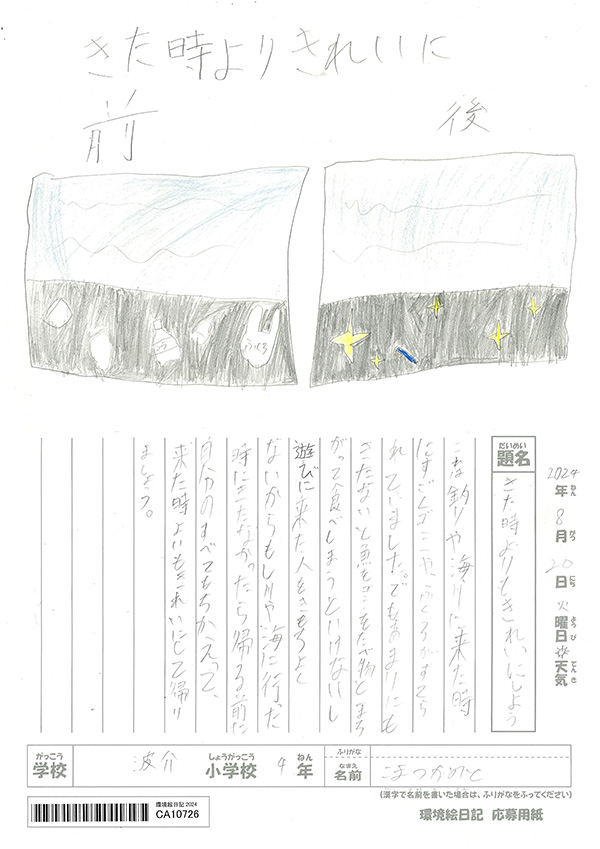 きた時よりきれいに
前
後
ふくろ
題名
だいめい
きた時よりもきれいにしよう
2024年8月20日火曜日 天気
ねん がつ にち ようび てんき
釣りや海りに来た時
にすごくゴミやふくろがすてら
れていました。でもあまりにも
きたないと魚もゴミをたべ物とまち
がって食べしまうといけないし
遊びに来た人もきもちよく
ないからもし川や海に行った
時にきたなかったら帰る前に
自分のすべてもちかえって、
来た時よいもきれいにして帰り
ましょう。
がっこう
学校
波介
しょうがっこう
小学校
4
ねん
年
ふりがな
なまえ
名前
(漢字で名前を書いた場合は、ふりがなをふってください)
環境絵日記 2024
CA10726
環境絵日記 応募用紙